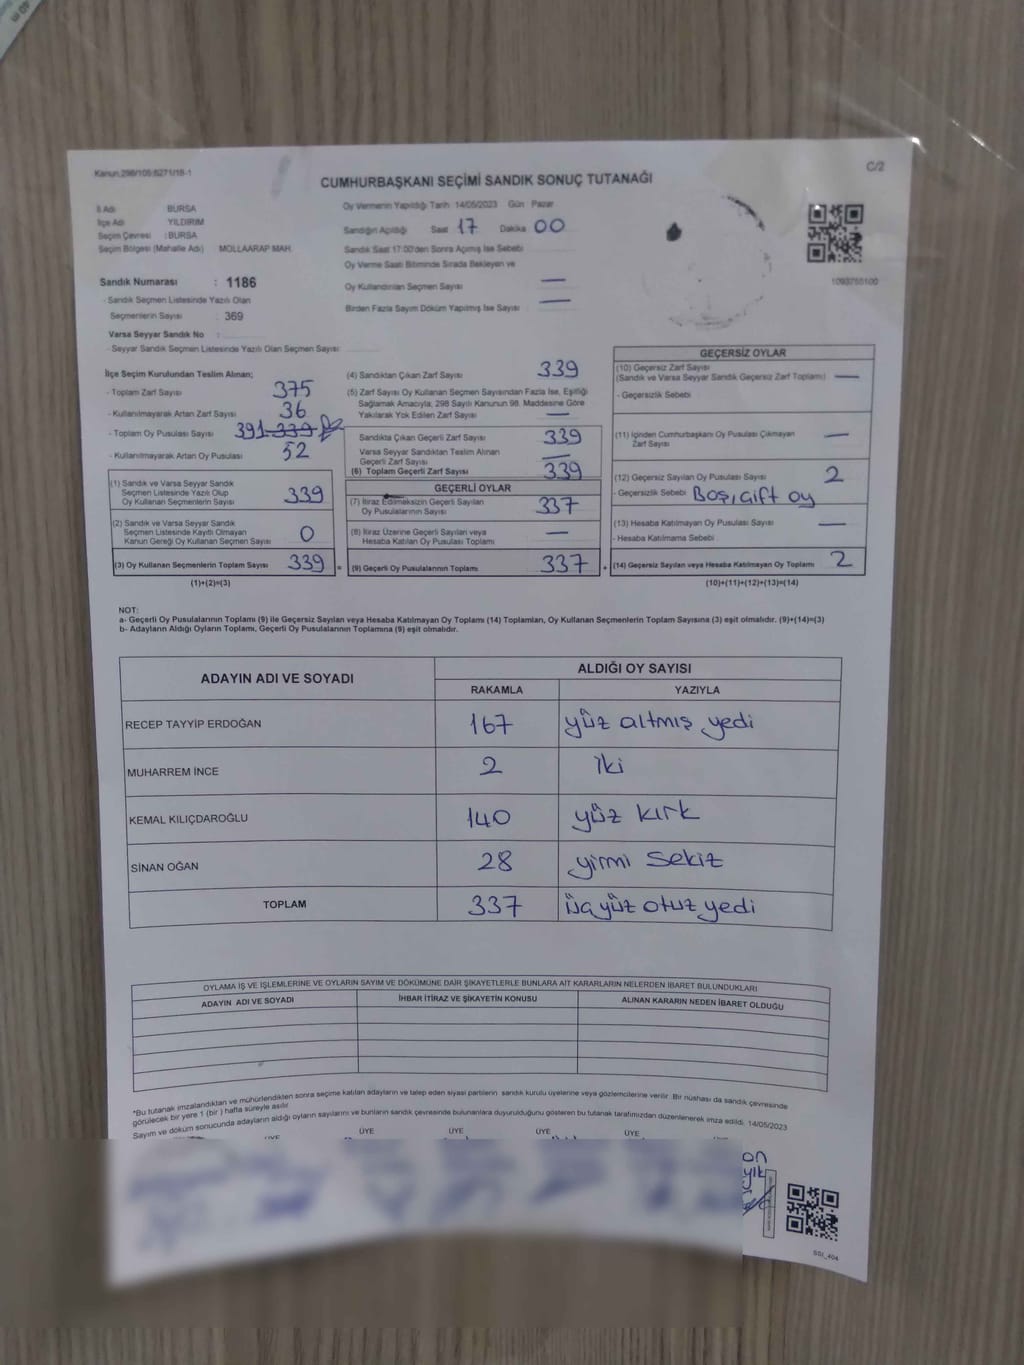 Kanun:298/105;6271/18-1
C/2
CUMHURBAŞKANI SEÇİMİ SANDIK SONUÇ TUTANAĞI
İl Adı BURSA
İlçe Adı YILDIRIM
Seçim Çevresi : BURSA
Seçim Bölgesi (Mahalle Adı) MOLLAARAP MAH.
Sandık Numarası : 1186
- Sandık Seçmen Listesinde Yazılı Olan
Seçmenlerin Sayısı : 369
Varsa Seyyar Sandık No :
- Seyyar Sandık Seçmen Listesinde Yazılı Olan Seçmen Sayısı
Oy Vermenin Yapıldığı Tarih 14/05/2023 Gün Pazar
Sandığın Açıldığı Saat 17 Dakika 00
Sandık Saat 17:00'den Sonra Açılmış İse Sebebi
Oy Verme Saati Bitiminde Sırada Bekleyen ve
Oy Kullandırılan Seçmen Sayısı —
Birden Fazla Sayım Döküm Yapılmış İse Sayısı —
1093755100
İlçe Seçim Kurulundan Teslim Alınan;
- Toplam Zarf Sayısı 375
- Kullanılmayarak Artan Zarf Sayısı 36
- Toplam Oy Pusulası Sayısı 391 339
- Kullanılmayarak Artan Oy Pusulası 52
(1) Sandık ve Varsa Seyyar Sandık
Seçmen Listesinde Yazılı Olup
Oy Kullanan Seçmenlerin Sayısı 339
(2) Sandık ve Varsa Seyyar Sandık
Seçmen Listesinde Kayıtlı Olmayan
Kanun Gereği Oy Kullanan Seçmen Sayısı 0
(3) Oy Kullanan Seçmenlerin Toplam Sayısı 339
(1)+(2)=(3)
(4) Sandıktan Çıkan Zarf Sayısı 339
(5) Zarf Sayısı Oy Kullanan Seçmen Sayısından Fazla İse, Eşitliği
Sağlamak Amacıyla, 298 Sayılı Kanunun 98. Maddesine Göre
Yakılarak Yok Edilen Zarf Sayısı —
Sandıkta Çıkan Geçerli Zarf Sayısı 339
Varsa Seyyar Sandıktan Teslim Alınan
Geçerli Zarf Sayısı —
(6) Toplam Geçerli Zarf Sayısı 339
GEÇERLİ OYLAR
(7) İtiraz Edilmeksizin Geçerli Sayılan
Oy Pusulalarının Sayısı 337
(8) İtiraz Üzerine Geçerli Sayılan veya
Hesaba Katılan Oy Pusulası Toplamı —
= (9) Geçerli Oy Pusulalarının Toplamı 337
GEÇERSİZ OYLAR
(10) Geçersiz Zarf Sayısı
(Sandık ve Varsa Seyyar Sandık Geçersiz Zarf Toplamı) —
- Geçersizlik Sebebi
(11) İçinden Cumhurbaşkanı Oy Pusulası Çıkmayan
Zarf Sayısı —
(12) Geçersiz Sayılan Oy Pusulası Sayısı 2
- Geçersizlik Sebebi Boş, çift oy
(13) Hesaba Katılmayan Oy Pusulası Sayısı —
- Hesaba Katılmama Sebebi
+ (14) Geçersiz Sayılan veya Hesaba Katılmayan Oy Toplamı 2
(10)+(11)+(12)+(13)=(14)
NOT:
a- Geçerli Oy Pusulalarının Toplamı (9) ile Geçersiz Sayılan veya Hesaba Katılmayan Oy Toplamı (14) Toplamları, Oy Kullanan Seçmenlerin Toplam Sayısına (3) eşit olmalıdır. (9)+(14)=(3)
b- Adayların Aldığı Oyların Toplamı, Geçerli Oy Pusulalarının Toplamına (9) eşit olmalıdır.
ADAYIN ADI VE SOYADI ALDIĞI OY SAYISI
RAKAMLA YAZIYLA
RECEP TAYYİP ERDOĞAN 167 yüz altmış yedi
MUHARREM İNCE 2 iki
KEMAL KILIÇDAROĞLU 140 yüz kırk
SİNAN OĞAN 28 yirmi sekiz
TOPLAM 337 üçyüz otuz yedi
OYLAMA İŞ VE İŞLEMLERİNE VE OYLARIN SAYIM VE DÖKÜMÜNE DAİR ŞİKAYETLERLE BUNLARA AİT KARARLARIN NELERDEN İBARET BULUNDUKLARI
ADAYIN ADI VE SOYADI İHBAR İTİRAZ VE ŞİKAYETİN KONUSU ALINAN KARARIN NEDEN İBARET OLDUĞU
*Bu tutanak imzalandıktan ve mühürlendikten sonra seçime katılan adayların ve talep eden siyasi partilerin sandık kurulu üyelerine veya gözlemcilerine verilir. Bir nüshası da sandık çevresinde
görülecek bir yere 1 (bir) hafta süreyle asılır.
Sayım ve döküm sonucunda adayların aldığı oyların sayılarını ve bunların sandık çevresinde bulunanlara duyurulduğunu gösteren bu tutanak tarafımızdan düzenlenerek imza edildi. 14/05/2023
ÜYE ÜYE ÜYE ÜYE ÜYE
SSI_404